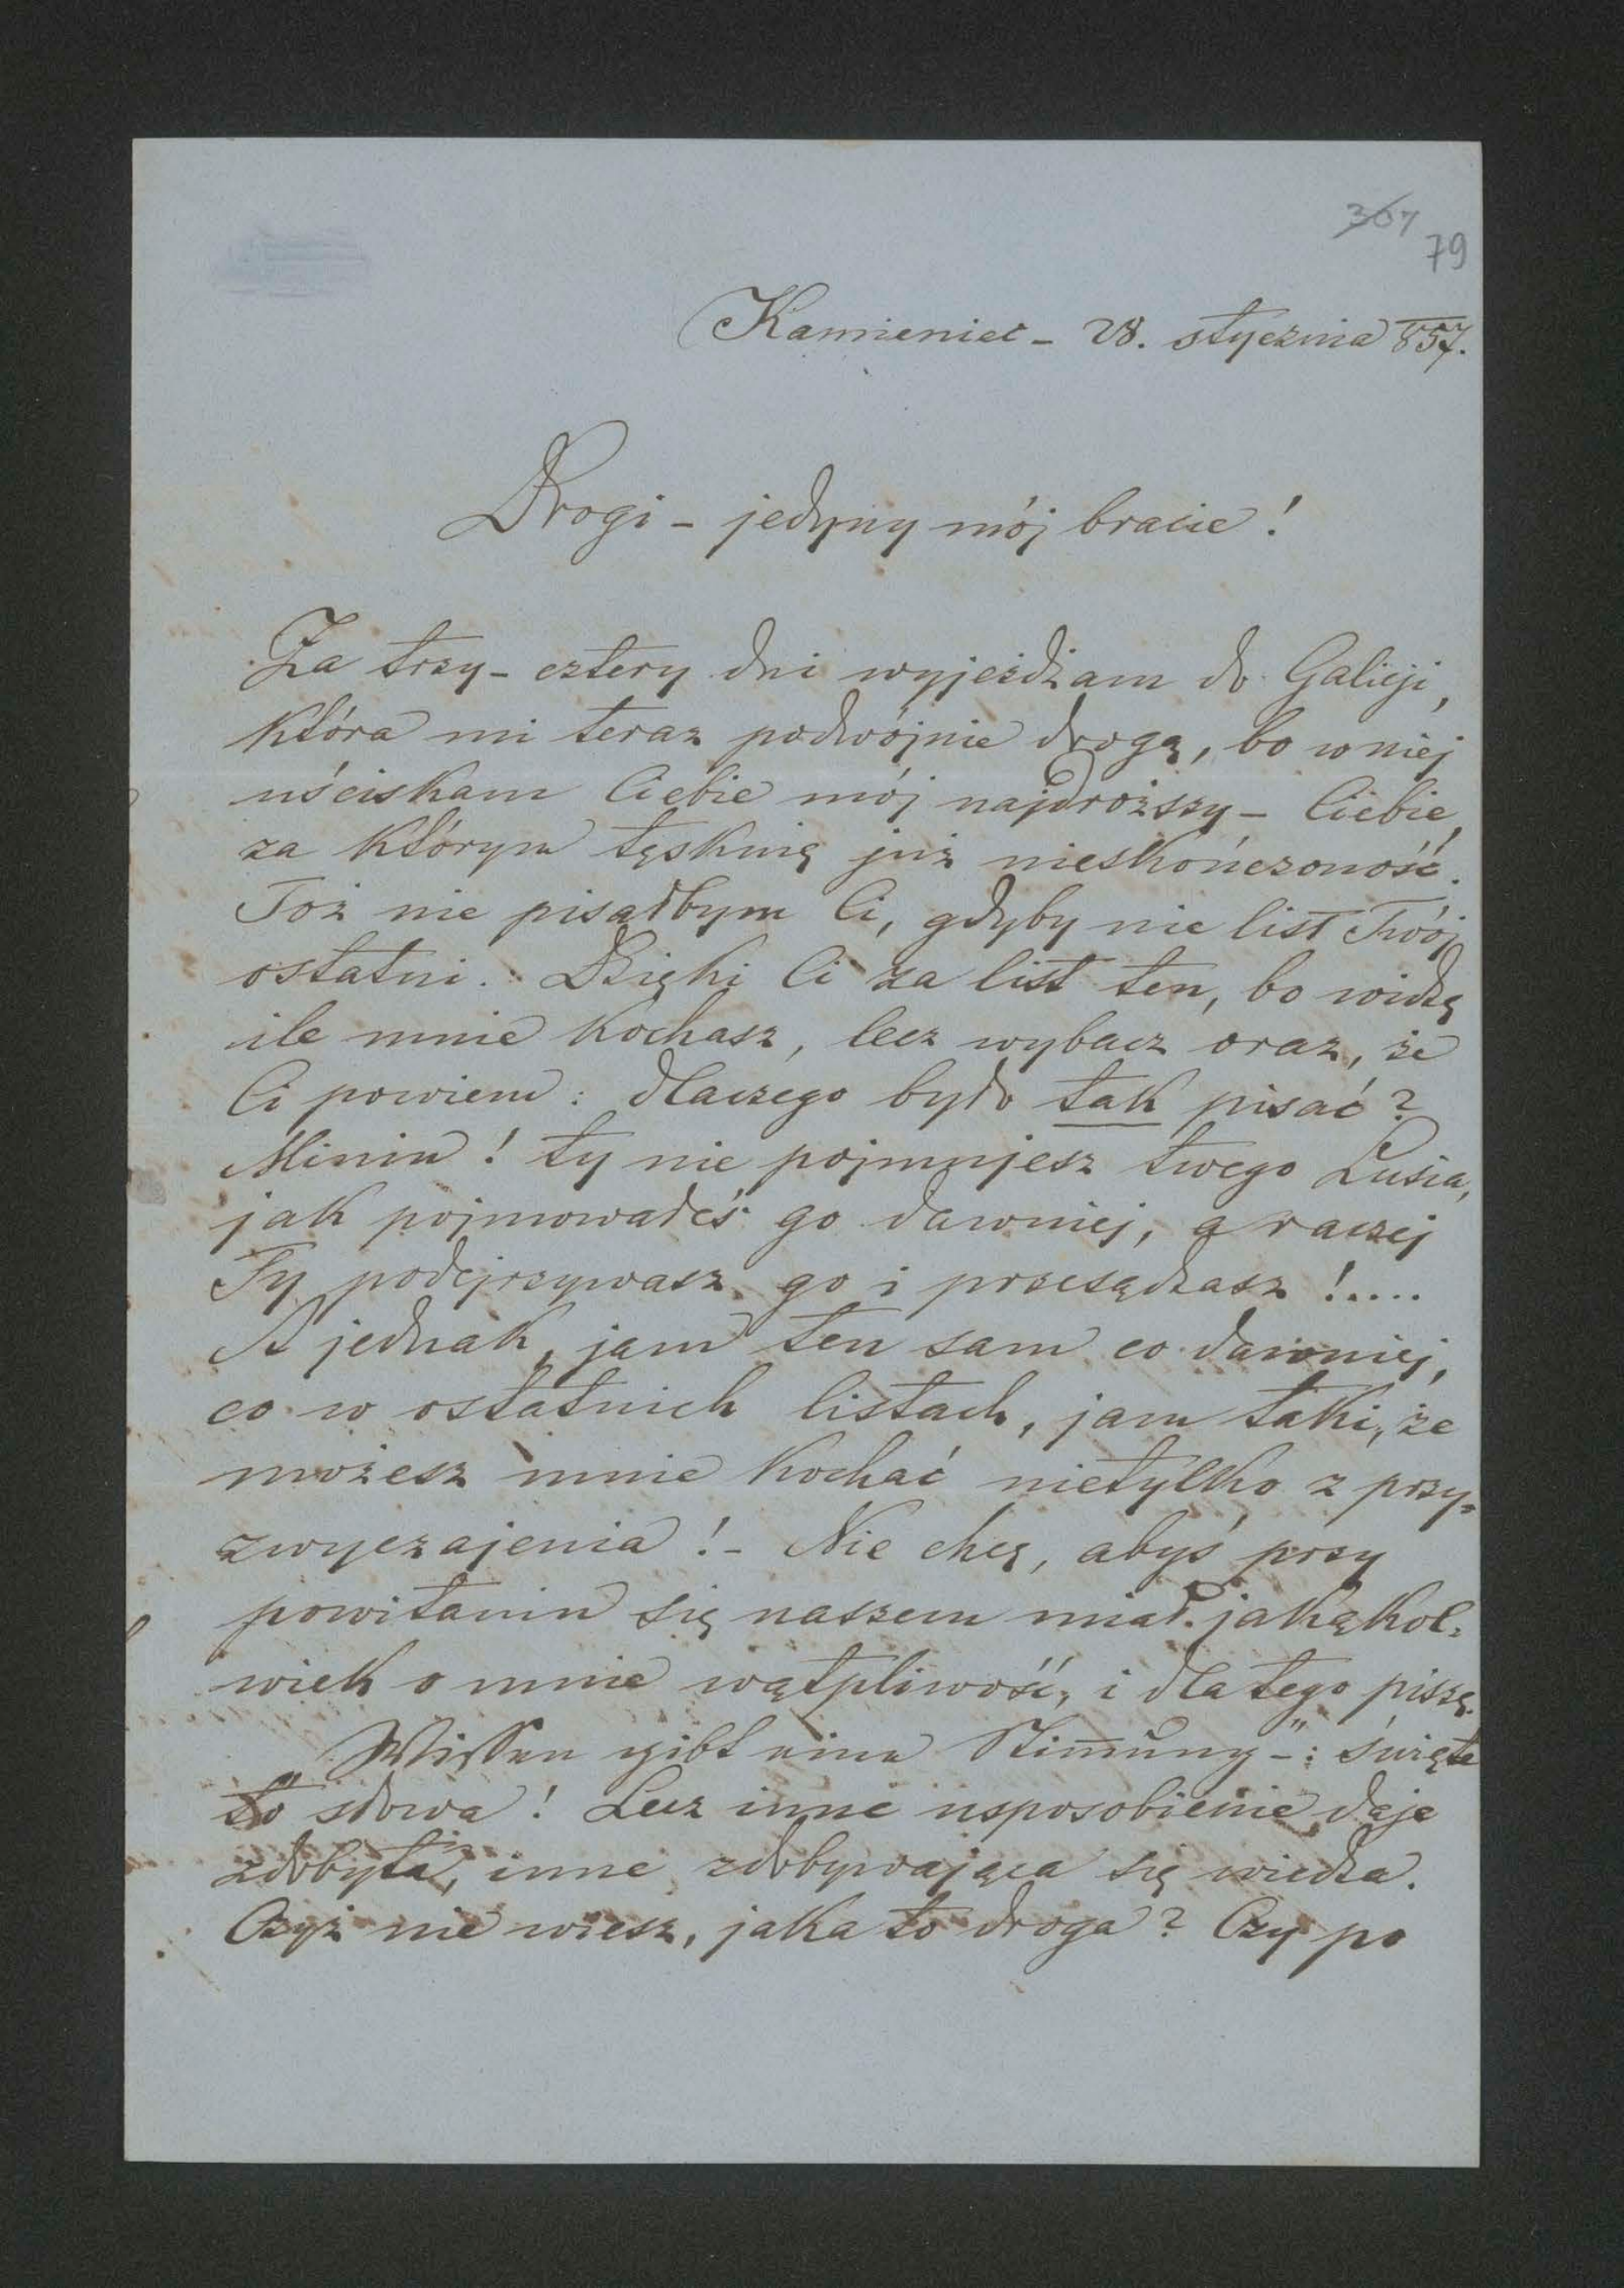 307
79
Kamieniec - 28. stycznia 857.
Drogi - jedyny mój bracie!
Za trzy - cztery dni wyjeżdżam do Galicji,
która mi teraz podwójnie drogą, bo w niej
uściskam Ciebie mój najdroższy - Ciebie,
za którym tęsknię już nieskończoność.
Toż nie pisałbym Ci, gdyby nie list Twój
ostatni. Dzięki Ci za list ten, bo widzę
ile mnie kochasz, lecz wybacz oraz, że
Ci powiem: dlaczego było tak pisać?
Miniu! ty nie pojmujesz twego Lusia,
jak pojmowałeś go dawniej, a raczej
Ty podejrzywasz go i przesądzasz!....
A jednak, jam ten sam co dawniej,
co w ostatnich listach, jam taki, że
możesz mnie kochać nietylko z przy=
zwyczajenia! - Nie chcę, abyś przy
powitaniu się naszem miał jakąkol=
wiek o mnie wątpliwość, i dla tego piszę.
„Wissen gibt eine Stimmung -": święte
to słowa! Lecz inne usposobienie daje
zdobyta, inne zdobywająca się wiedza.
Czyż nie wiesz, jaka to droga? Czy po